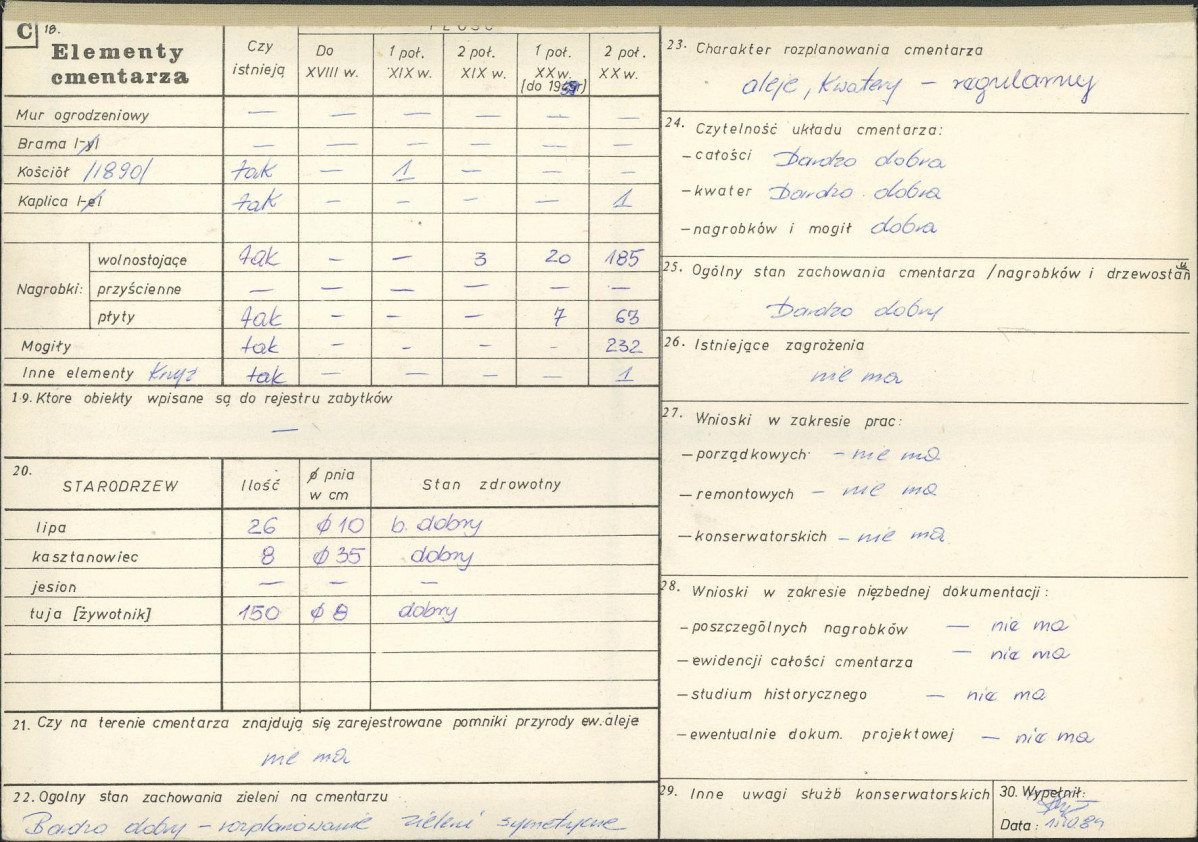 C 18.
Elementy cmentarza
Czy istnieją
Do XVIII w.
1 poł. XIX w.
2 poł. XIX w.
1 poł. XX w. [do 1945r]
2 poł. XX w.
Mur ogrodzeniowy — — — — — —
Brama I-yI — — — — — —
Kościół /1890/ tak — 1 — — —
Kaplica I-eI tak — — — — 1
Nagrobki:
wolnostojące tak — — 3 20 185
przyścienne — — — — — —
płyty tak — — — 7 63
Mogiły tak — — — — 232
Inne elementy Krzyż tak — — — — 1
19. Ktore obiekty wpisane są do rejestru zabytków
—
20.
STARODRZEW Ilość ϕ pnia w cm Stan zdrowotny
lipa 26 ϕ 10 b. dobry
kasztanowiec 8 ϕ 35 dobry
jesion — — —
tuja [żywotnik] 150 ϕ 8 dobry
21. Czy na terenie cmentarza znajdują się zarejestrowane pomniki przyrody ew. aleje
nie ma
22. Ogolny stan zachowania zieleni na cmentarzu
Bardzo dobry – rozplanowanie zieleni symetryczne
23. Charakter rozplanowania cmentarza
aleje, kwatery – regularny
24. Czytelność układu cmentarza:
– całości Bardzo dobra
– kwater Bardzo dobra
– nagrobków i mogił dobra
25. Ogólny stan zachowania cmentarza /nagrobków i drzewostan
Bardzo dobry
26. Istniejące zagrożenia
nie ma
27. Wnioski w zakresie prac:
– porządkowych – nie ma
– remontowych – nie ma
– konserwatorskich – nie ma
28. Wnioski w zakresie nięzbednej dokumentacji:
– poszczególnych nagrobków — nie ma
– ewidencji całości cmentarza — nie ma
– studium historycznego — nie ma
– ewentualnie dokum. projektowej — nie ma
29. Inne uwagi służb konserwatorskich
30. Wypełnił:
Data: